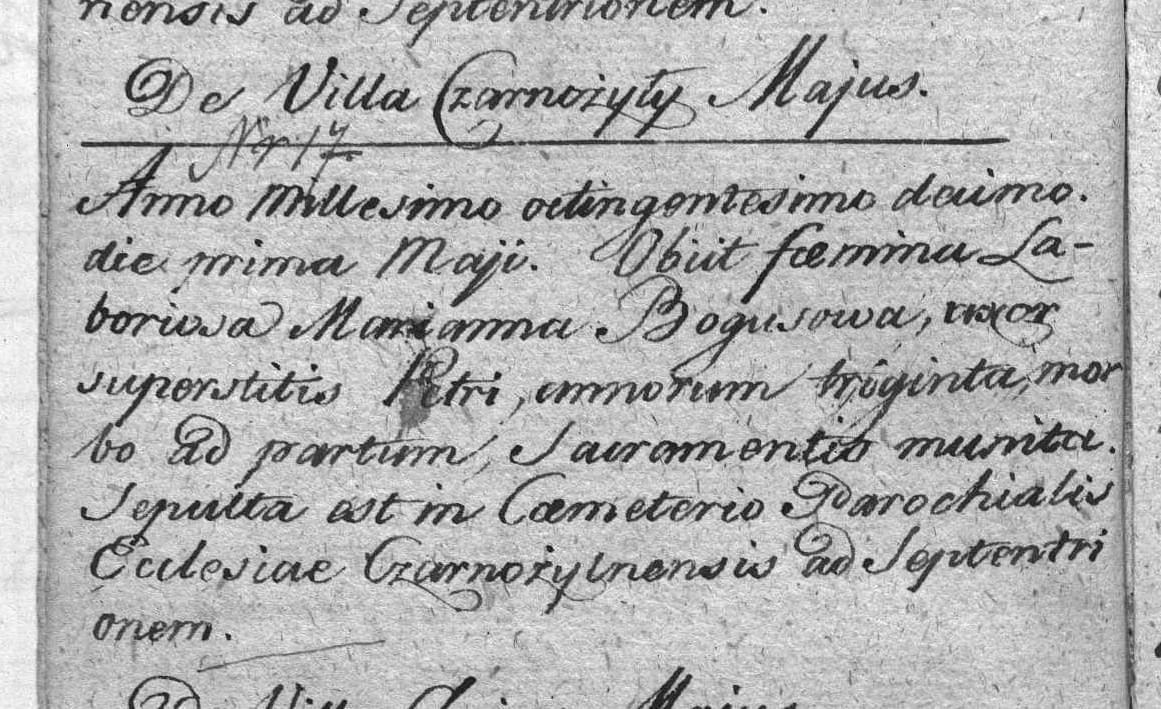 nensis ad Septentrionem.
De Villa Czarnożyły Majus.
Nr 17
Anno Millesimo octingentesimo decimo.
die prima Maji. Obiit fœmina La-
boriosa Marianna Bogusowa, uxor
superstitis Petri, annorum triginta, mor
bo ad partum, Sacramentis munita.
Sepulta est in Cœmeterio Parochialis
Ecclesiae Czarnożylnensis ad Septentri
onem.
De Villa Majus